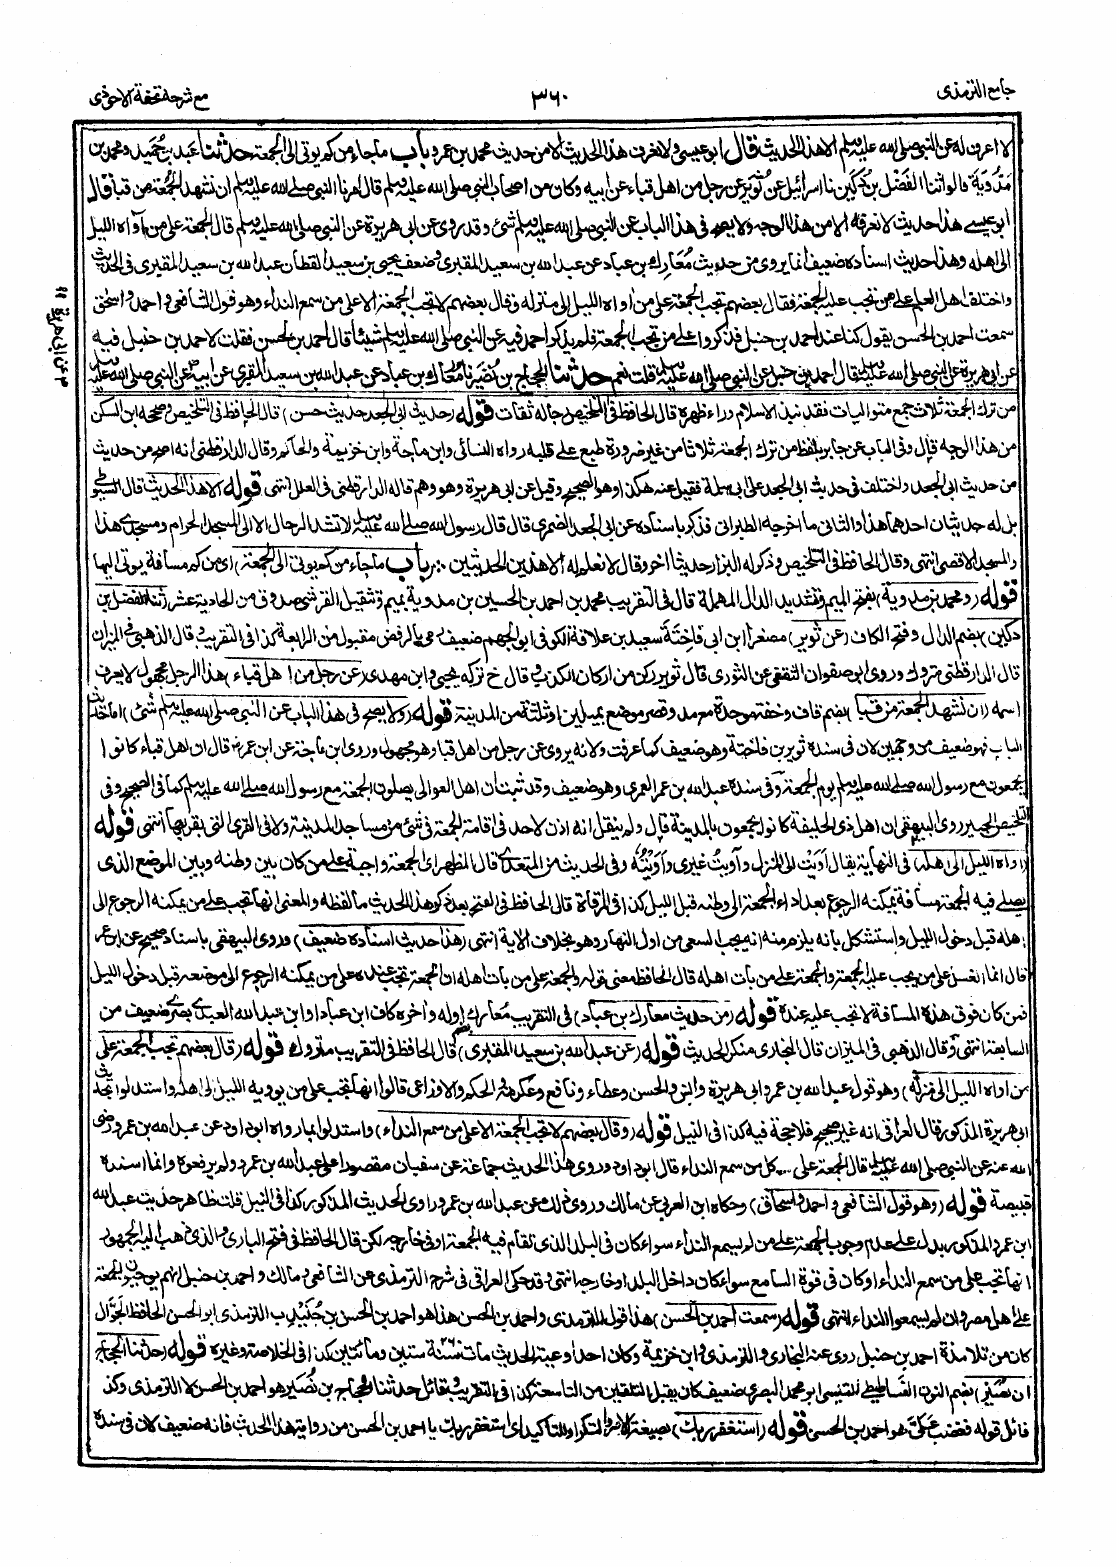 جامع الترمذى
٣٦٠
مع شرحه تحفة الاحوذى
لا اعرف له عن النبي صلى الله عليه وسلم الا هذا الحديث قال ابو عيسى ولا نعرف هذا الحديث الا من حديث محمد بن عمرو باب ما جاء من كم يوتى الى الجمعة حدثنا عبد بن حميد ومحمد بن
مدوية قالوا ثنا الفضل بن دكين نا اسرائيل عن ثوير عن رجل من اهل قباء عن ابيه وكان من اصحاب النبي صلى الله عليه وسلم قال امرنا النبي صلى الله عليه وسلم ان نشهد الجمعة من قباء قال
ابو عيسى هذا حديث لا نعرفه الا من هذا الوجه ولا يصح فى هذا الباب عن النبي صلى الله عليه وسلم شئ وقد روى عن ابى هريرة عن النبي صلى الله عليه وسلم قال الجمعة على من آواه الليل
الى اهله وهذا حديث اسناده ضعيف انما يروى من حديث معارك بن عباد عن عبد الله بن سعيد المقبرى وضعف يحيى بن سعيد القطان عبد الله بن سعيد المقبرى فى الحديث
واختلف اهل العلم على من تجب عليه الجمعة فقال بعضهم تجب الجمعة على من اواه الليل الى منزله وقال بعضهم لا تجب الجمعة الا على من سمع النداء وهو قول الشافعى واحمد واسحق
سمعت احمد بن الحسن يقول كنا عند احمد بن حنبل فذكروا على من تجب الجمعة فلم يذكر احمد فيه عن النبي صلى الله عليه وسلم شيئا قال احمد بن الحسن فقلت لاحمد بن حنبل فيه
عن ابى هريرة عن النبي صلى الله عليه وسلم فقال احمد بن حنبل عن النبي صلى الله عليه وسلم قلت نعم حدثنا الحجاج بن نصير نا معارك بن عباد عن عبد الله بن سعيد المقبرى عن ابيه عن النبي صلى الله عليه وسلم
من ترك الجمعة ثلاث جمع متواليات فقد نبذ الاسلام وراء ظهره قال الحافظ فى التلخيص رجاله ثقات قوله (حديث ابى الجعد حديث حسن) قال الحافظ فى التلخيص وصححه ابن السكن
من هذا الوجه قال وفى الباب عن جابر بلفظ من ترك الجمعة ثلاثا من غير ضرورة طبع على قلبه رواه النسائى وابن ماجة وابن خزيمة والحاكم وقال الدارقطنى انه اصح من حديث
من حديث ابى الجعد واختلف فى حديث ابى الجعد على ابى سلمة فقيل عنه هكذا وهو الصحيح وقيل عن ابى هريرة وهو وهم قاله الدارقطنى فى العلل انتهى قوله الا هذا الحديث قال السيوطى
بل له حديثان احدهما هذا والثانى ما اخرجه الطبرانى فذكر باسناده عن ابى الجعد الضمرى قال قال رسول الله صلى الله عليه وسلم لا تشد الرحال الا الى المسجد الحرام ومسجدى هذا
والمسجد الاقصى انتهى وقال الحافظ فى التلخيص وذكر له البزار حديثا آخر وقال لا نعلم له الا هذين الحديثين (باب ما جاء من كم يوتى الى الجمعة) اى من كم مسافة يوتى اليها
قوله (ومحمد بن مدوية) بفتح الميم وتشديد الدال المهملة قال فى التقريب محمد بن احمد بن الحسين بن مدوية بميم وتثقيل القرشى صدوق من الحادية عشر (ثنا الفضل بن
دكين) بضم الدال وفتح الكاف (عن ثوير) مصغرا ابن ابى فاختة سعيد بن علاقة الكوفى ابو الجهم ضعيف رمى بالرفض مقبول من الرابعة كذا فى التقريب قال الذهبى فى الميزان
قال الدارقطنى متروك وروى ابو صفوان الثقفى عن الثورى قال ثوير ركن من اركان الكذب قال خ تركه يحيى وابن مهدى (عن رجل من اهل قباء) هذا الرجل مجهول لا يعرف
اسمه (ان نشهد الجمعة من قباء) بضم قاف وخفة موحدة مع مد وقصر موضع بميلين او ثلثة من المدينة قوله (ولا يصح فى هذا الباب عن النبي صلى الله عليه وسلم شئ) اما حديث
الباب فهو ضعيف من وجهين لان فى سنده ثوير بن فاختة وهو ضعيف كما عرفت ولانه يروى عن رجل من اهل قباء وهو مجهول وروى ابن ماجة عن ابن عمر قال ان اهل قباء كانوا
يجمعون مع رسول الله صلى الله عليه وسلم يوم الجمعة وفى سنده عبد الله بن عمر العمرى وهو ضعيف وقد ثبت ان اهل العوالى يصلون الجمعة مع رسول الله صلى الله عليه وسلم كما فى الصحيح وفى
التلخيص الحبير روى البيهقى ان اهل ذى الحليفة كانوا يجمعون بالمدينة قال ولم ينقل انه اذن لاحد فى اقامة الجمعة فى شئ من مساجد المدينة ولا فى القرى التى بقربها انتهى قوله
(اواه الليل الى اهله) فى النهاية يقال أويت الى المنزل وآويت غيرى وأويته وفى الحديث من المتعدى قال المظهر اى الجمعة واجبة على من كان بين وطنه وبين الموضع الذى
يصلى فيه الجمعة مسافة يمكنه الرجوع بعد اداء الجمعة الى وطنه قبل الليل كذا فى المرقاة قال الحافظ فى الفتح بعد ذكر هذا الحديث ما لفظه والمعنى انها تجب على من يمكنه الرجوع الى
اهله قبل دخول الليل واستشكل بانه يلزم منه انه يجب السعى من اول النهار وهو بخلاف الآية انتهى (هذا حديث اسناده ضعيف) وروى البيهقى باسناد صحيح عن ابن عمر
قال انما الغسل على من يجب عليه الجمعة والجمعة على من بات اهله قال الحافظ معنى قوله والجمعة على من بات اهله ان الجمعة تجب عنده على من يمكنه الرجوع الى موضعه قبل دخول الليل
فمن كان فوق هذه المسافة لا تجب عليه عنده قوله (من حديث معارك بن عباد) فى التقريب معارك اوله وآخره كاف ابن عباد او ابن عبد الله العبدى بصرى ضعيف من
السابعة انتهى وقال الذهبى فى الميزان قال البخارى منكر الحديث قوله (عن عبد الله بن سعيد المقبرى) قال الحافظ فى التقريب متروك قوله (قال بعضهم تجب الجمعة على
من اواه الليل الى منزله) وهو قول عبد الله بن عمر وابى هريرة وانس والحسن وعطاء ونافع وعكرمة والحكم والاوزاعى قالوا انها تجب على من يوويه الليل الى اهله واستدلوا بحديث
ابى هريرة المذكور قال العراقى انه غير صحيح فلا حجة فيه كذا فى النيل قوله (وقال بعضهم لا تجب الجمعة الا على من سمع النداء) واستدلوا بما رواه ابو داود عن عبد الله بن عمرو رضى
الله عنه عن النبي صلى الله عليه وسلم قال الجمعة على كل من سمع النداء قال ابو داود وروى هذا الحديث جماعة عن سفيان مقصورا على عبد الله بن عمرو ولم يرفعوه وانما اسنده
قبيصة قوله (وهو قول الشافعى واحمد واسحاق) وحكاه ابن العربى عن مالك وروى ذلك عن عبد الله بن عمرو راوى الحديث المذكور كذا فى النيل قلت ظاهر حديث عبد الله
ابن عمرو المذكور يدل على عدم وجوب الجمعة على من لم يسمع النداء سواء كان فى البلد الذى تقام فيه الجمعة او فى خارجه لكن قال الحافظ فى فتح البارى والذى ذهب اليه الجمهور
انها تجب على من سمع النداء او كان فى قوة السامع سواء كان داخل البلد او خارجه انتهى وقد حكى العراقى فى شرح الترمذى عن الشافعى ومالك واحمد بن حنبل انهم يوجبون الجمعة
على اهل مصر وان لم يسمعوا النداء انتهى قوله (سمعت احمد بن الحسن) هذا قول الترمذى واحمد بن الحسن هذا هو احمد بن الحسن بن جنيدب الترمذى ابو الحسن الحافظ الجوال
كان من تلامذة احمد بن حنبل روى عنه البخارى والترمذى وابن خزيمة وكان احد اوعية الحديث مات سنة ستين ومائتين كذا فى الخلاصة وغيره قوله (حدثنا الحجاج
ابن نصير) بضم النون الفساطيطى القيسى ابو محمد البصرى ضعيف كان يقبل التلقين من التاسعة كذا فى التقريب وقائل حدثنا الحجاج بن نصير هو احمد بن الحسن لا الترمذى وكذا
قائل قوله فغضب على هو احمد بن الحسن قوله (استغفر ربك) بصيغة الامر والتكرار للتأكيد اى استغفر ربك يا احمد بن الحسن من روايتك هذا الحديث فانه ضعيف لان فى سنده